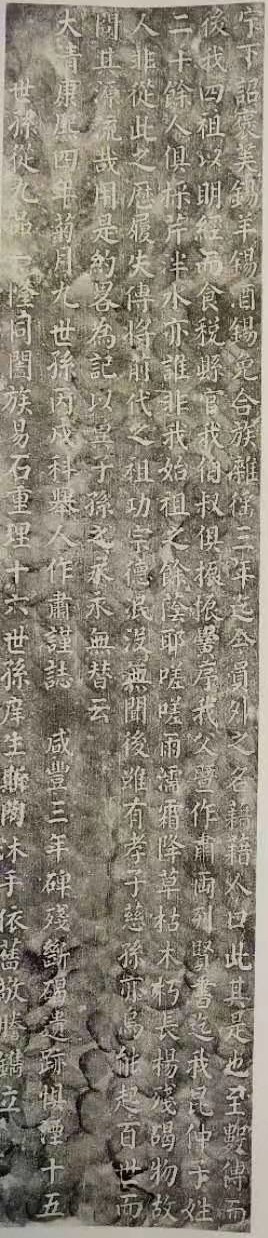 宁下詔褒美錫羊錫酒錫免合族雜徭三年迄今員外之名藉藉人口此其是也至數傳而
後我四祖以明經而食稅縣官我伯叔俱振振黌序我父暨作肅兩列賢書迄我昆仲子姓
二十餘人俱採芹泮水亦誰非我始祖之餘蔭耶嗟嗟雨濡霜降草枯木朽長楊殘碣物故
人非從此之歷履失傳將前代之祖功宗德泯沒無聞後雖有孝子慈孫亦烏能起百世而
聞其源流哉用是約畧為記以異子孫之承承無替云
大清康熙四年菊月九世孫丙戌科舉人作肅謹誌 咸豐三年碑殘斷碣遺跡惧湮十五
世孫從九品一隆同闔族易石重理十六世孫庠生聯陶沐手依舊敬騰鐫立